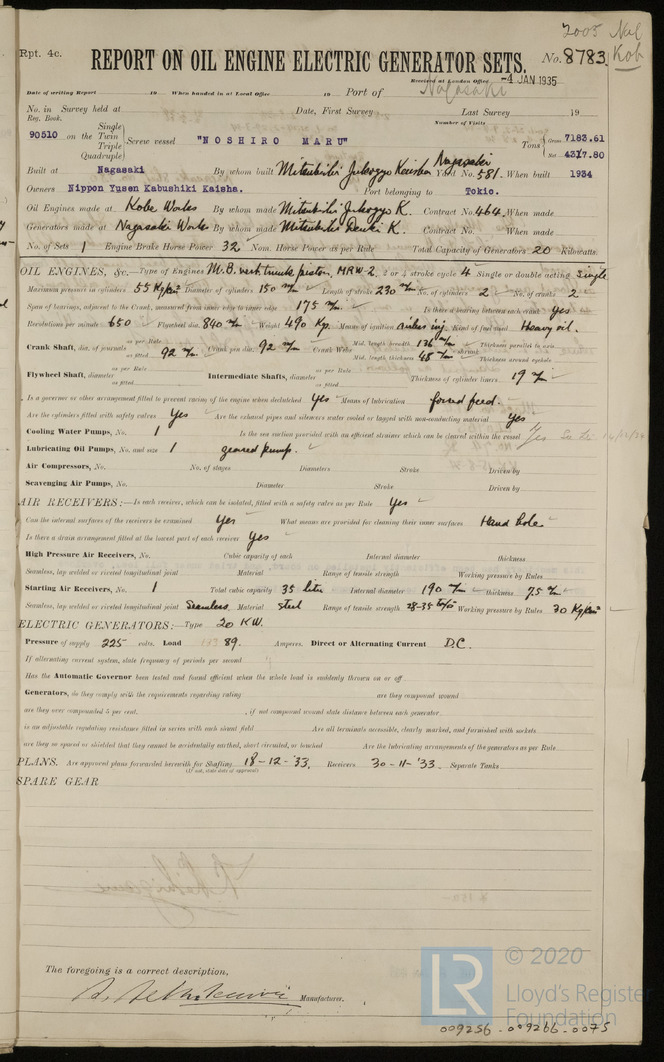 2005 Nal
Kob
Rpt. 4c.
REPORT ON OIL ENGINE ELECTRIC GENERATOR SETS. No. 8783.
Received at London Office -4 JAN 1935
Date of writing Report 19 When handed in at Local Office 19 Port of Nagasaki
No. in Survey held at Date, First Survey Last Survey 19
Reg. Book. Number of Visits
90510 on the Single Twin Triple Quadruple Screw vessel "NOSHIRO MARU" Tons Gross 7183.61 Net 4317.80
Built at Nagasaki By whom built Mitsubishi Jukogyo Kaisha Nagasaki Yard No. 581. When built 1934
Owners Nippon Yusen Kabushiki Kaisha. Port belonging to Tokio.
Oil Engines made at Kobe Works By whom made Mitsubishi Jukogyo K. Contract No. 464. When made
Generators made at Nagasaki Works By whom made Mitsubishi Denki K. Contract No. When made
No. of Sets 1 Engine Brake Horse Power 32 Nom. Horse Power as per Rule Total Capacity of Generators 20 Kilowatts.
OIL ENGINES, &c.—Type of Engines M.B. vert. trunk piston, MRW-2 2 or 4 stroke cycle 4 Single or double acting Single
Maximum pressure in cylinders 55 Kg/cm² Diameter of cylinders 150 m/m Length of stroke 230 m/m No. of cylinders 2 No. of cranks 2
Span of bearings, adjacent to the Crank, measured from inner edge to inner edge 175 m/m Is there a bearing between each crank Yes
Revolutions per minute 650 Flywheel dia. 840 m/m Weight 490 Kg. Means of ignition airless inj. Kind of fuel used Heavy oil.
Crank Shaft, dia. of journals as per Rule as fitted 92 m/m Crank pin dia. 92 m/m Crank Webs Mid. length breadth 136 m/m Mid. length thickness 48 m/m shrunk Thickness parallel to axis Thickness around eyehole
Flywheel Shaft, diameter as per Rule as fitted Intermediate Shafts, diameter as per Rule as fitted Thickness of cylinder liners 19 m/m
Is a governor or other arrangement fitted to prevent racing of the engine when declutched Yes Means of lubrication forced feed.
Are the cylinders fitted with safety valves Yes Are the exhaust pipes and silencers water cooled or lagged with non-conducting material Yes
Cooling Water Pumps, No. 1 Is the sea suction provided with an efficient strainer which can be cleared within the vessel Yes
Lubricating Oil Pumps, No. and size 1 geared pump.
Air Compressors, No. No. of stages Diameters Stroke Driven by
Scavenging Air Pumps, No. Diameter Stroke Driven by
AIR RECEIVERS:—Is each receiver, which can be isolated, fitted with a safety valve as per Rule Yes
Can the internal surfaces of the receivers be examined Yes What means are provided for cleaning their inner surfaces Hand hole
Is there a drain arrangement fitted at the lowest part of each receiver Yes
High Pressure Air Receivers, No. Cubic capacity of each Internal diameter thickness
Seamless, lap welded or riveted longitudinal joint Material Range of tensile strength Working pressure by Rules
Starting Air Receivers, No. 1 Total cubic capacity 35 liter Internal diameter 190 m/m thickness 7.5 m/m
Seamless, lap welded or riveted longitudinal joint Seamless Material Steel Range of tensile strength 28-35 Working pressure by Rules 30 Kg/cm²
ELECTRIC GENERATORS:—Type 20 KW.
Pressure of supply 225 volts. Load 89. Amperes. Direct or Alternating Current D.C.
If alternating current system, state frequency of periods per second
Has the Automatic Governor been tested and found efficient when the whole load is suddenly thrown on or off
Generators, do they comply with the requirements regarding rating are they compound wound
are they over compounded 5 per cent. , if not compound state distance between each generator
is an adjustable regulating resistance fitted in series with each shunt field Are all terminals accessible, clearly marked, and furnished with sockets
are they so spaced or shielded that they cannot be accidentally earthed, short circuited, or touched Are the lubricating arrangements of the generators as per Rule
PLANS. Are approved plans forwarded herewith for Shafting 18-12-'33. Receivers 30-11-'33. Separate Tanks
(If not, state date of approval)
SPARE GEAR
The foregoing is a correct description,
Manufacturer.
LR
© 2020
Lloyd's Register
Foundation
009256-009266-0075